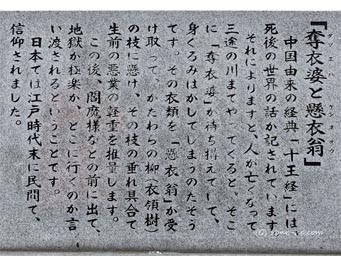 『奪衣婆と懸衣翁』
中国由来の経典「十王経」には、
死後の世界の話が記されています
それによりますと、人が亡くなって
三途の川までやってくると、そこ
に「奪衣婆」が待ち構えていて、
身ぐるみはがしてしまうのだそう
です。その衣類を「懸衣翁」が受
け取って、かたわらの柳(衣領樹)
の枝に懸け、その枝の垂れ具合で
生前の悪業の軽重を推量します。
この後、閻魔様などの前に出て、
地獄か極楽か、どこに行くのか言
い渡されるということです。
日本では江戸時代末に民間で、
信仰されました。